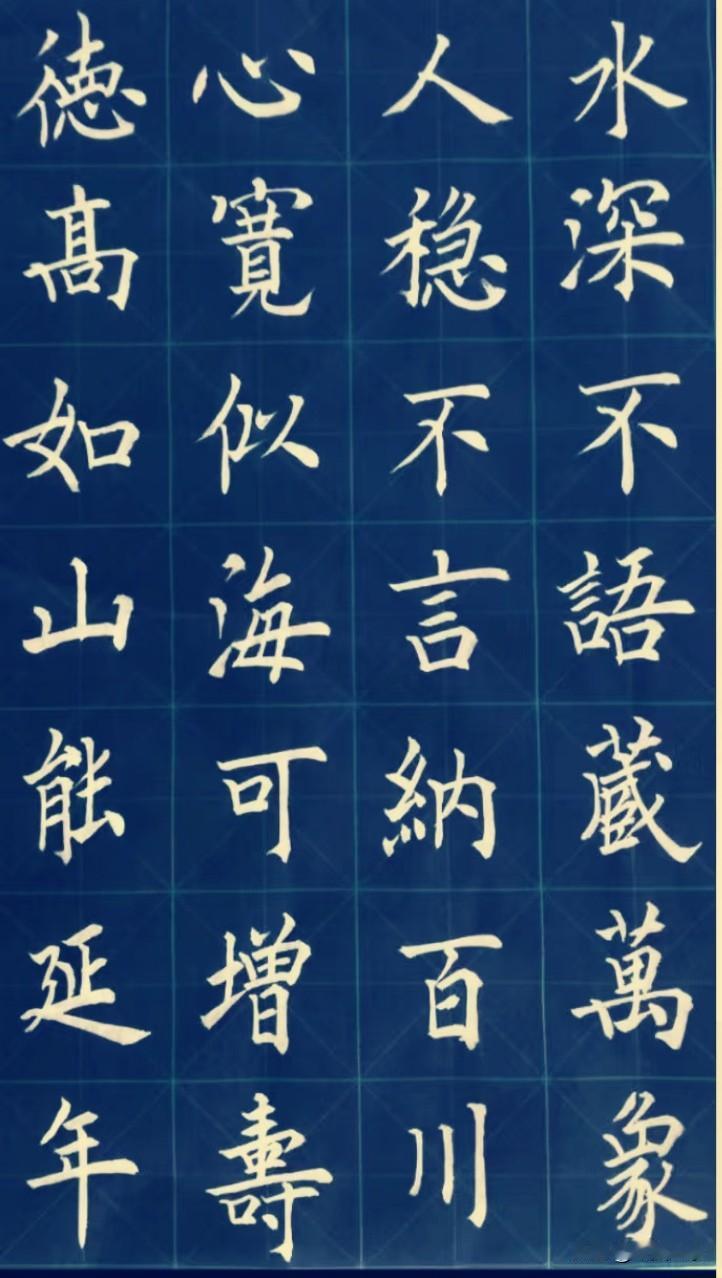 水深不語蔵萬象
人穏不言納百川
心寛似海可增壽
徳髙如山能延年